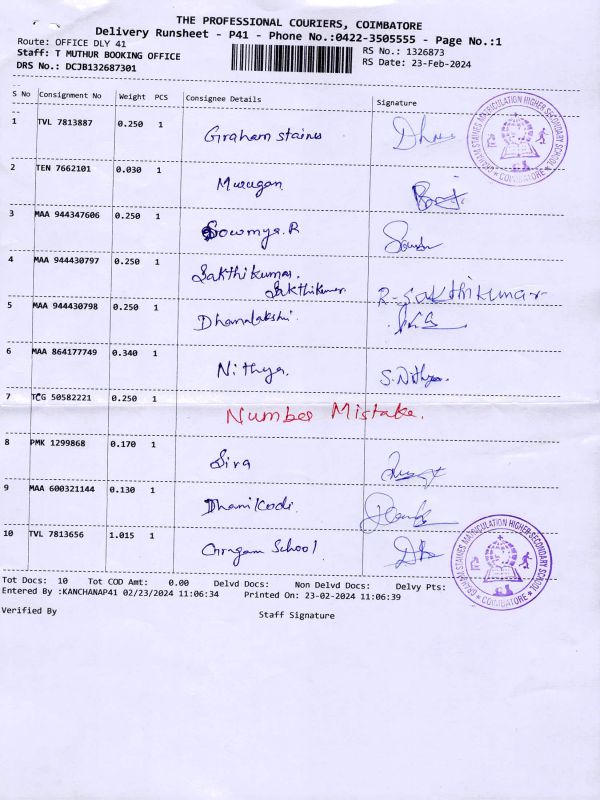 THE PROFESSIONAL COURIERS, COIMBATORE
Delivery Runsheet - P41 - Phone No.:0422-3505555 - Page No.:1
Route: OFFICE DLY 41
RS No.: 1326873
Staff: T MUTHUR BOOKING OFFICE
RS Date: 23-Feb-2024
DRS No.: DCJB132687301
S No Consignment No Weight PCS Consignee Details Signature
1 TVL 7813887 0.250 1 Graham staines
GRAHAM STAINES MATRICULATION HIGHER SECONDARY SCHOOL
★ COIMBATORE ★
2 TEN 7662101 0.030 1 Murugan
3 MAA 944347606 0.250 1 Sowmya.R
4 MAA 944430797 0.250 1 Sakthikumar.
Sakthikumar R-Sakthikumar
5 MAA 944430798 0.250 1 Dhanalakshi.
6 MAA 864177749 0.340 1 Nithya. S.Nithya.
7 TCG 50582221 0.250 1 Number Mistake.
8 PMK 1299868 0.170 1 Siva
9 MAA 600321144 0.130 1
10 TVL 7813656 1.015 1 School
GRAHAM STAINES MATRICULATION HIGHER SECONDARY SCHOOL
★ COIMBATORE ★
Tot Docs: 10 Tot COD Amt: 0.00 Delvd Docs: Non Delvd Docs: Delvy Pts:
Entered By :KANCHANAP41 02/23/2024 11:06:34 Printed On: 23-02-2024 11:06:39
Verified By Staff Signature